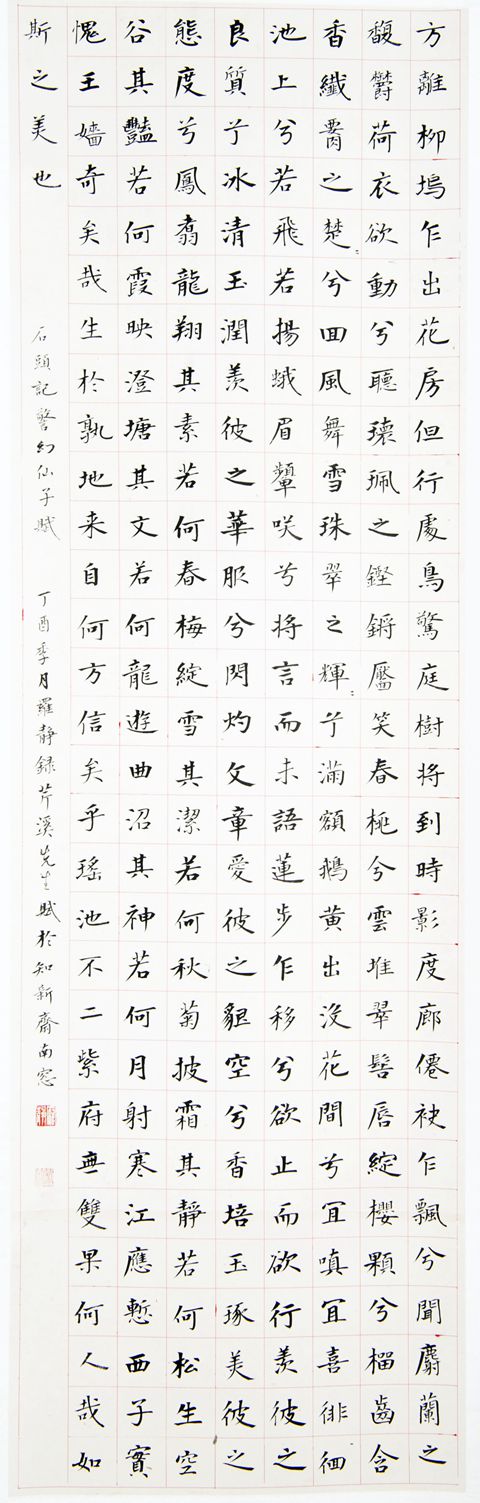 方離柳塢乍出花房但行處鳥驚庭樹將到時影度廊僊袂乍飄兮聞麝蘭之
馥欝荷衣欲動兮聽環珮之鏗鏘靨笑春桃兮雲堆翠髻唇綻櫻顆兮榴齒含
香纖腰之楚〻兮回風舞雪珠翠之輝〻兮滿額鵝黃出沒花間兮宜嗔宜喜徘徊
池上兮若飛若揚蛾眉顰咲兮將言而未語蓮步乍移兮欲止而欲行羨彼之
良質兮冰清玉潤羨彼之華服兮閃灼文章愛彼之貌空兮香培玉琢美彼之
態度兮鳳翥龍翔其素若何春梅綻雪其潔若何秋菊披霜其靜若何松生空
谷其豔若何霞映澄塘其文若何龍遊曲沼其神若何月射寒江應慙西子實
愧王嬙奇矣哉生於孰地来自何方信矣乎瑤池不二紫府無雙果何人哉如
斯之美也 石頭記警幻仙子賦 丁酉季月羅靜録芹溪先生賦於知新齋南窓